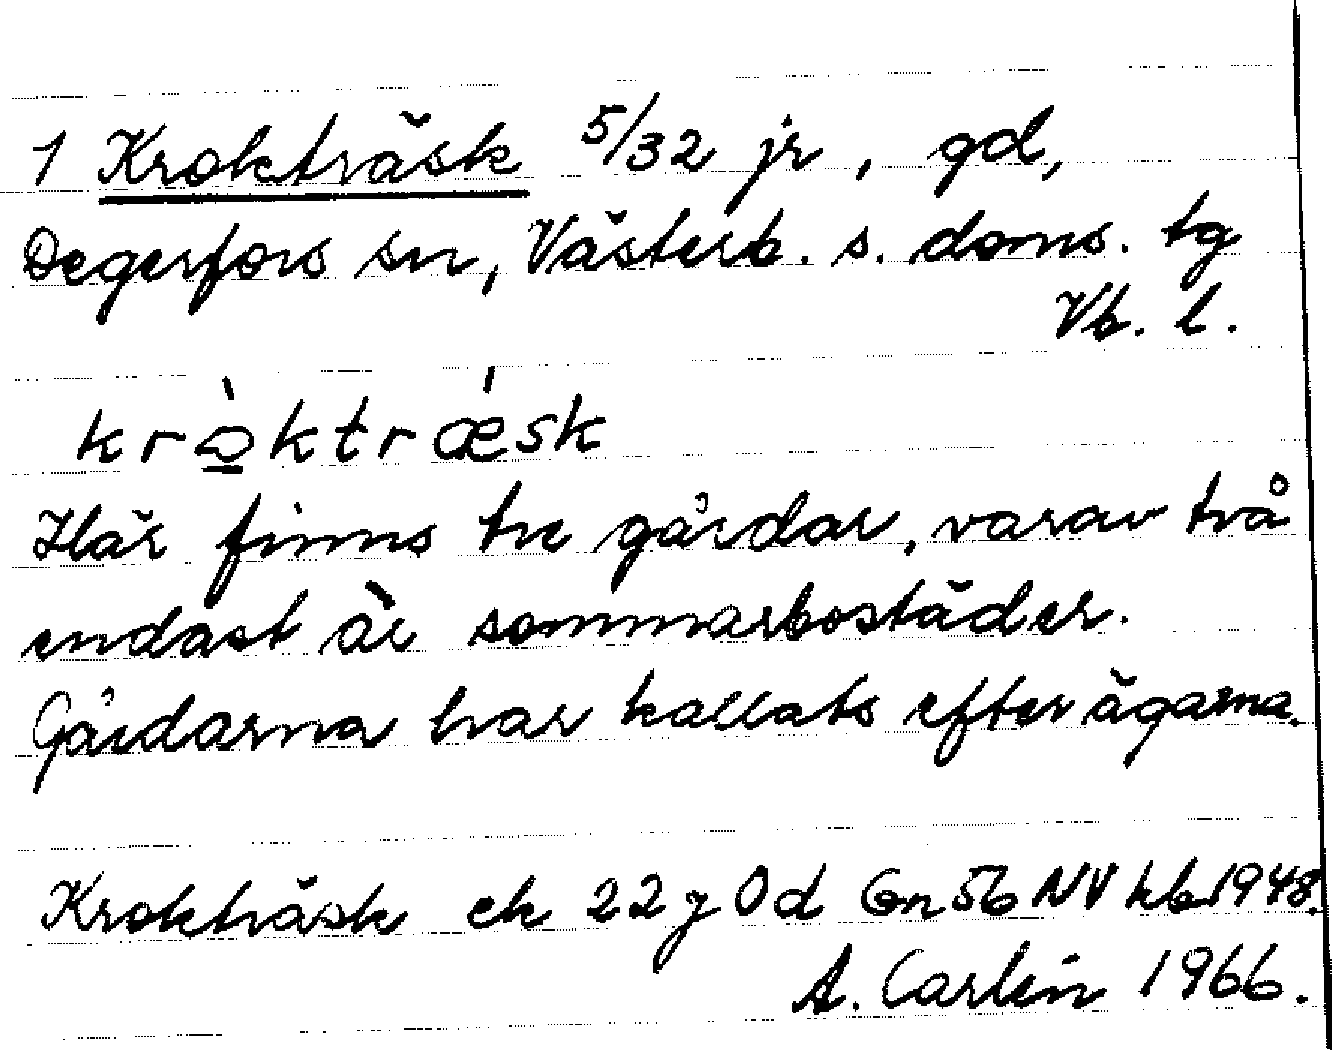 1 Krokträsk 5/32 jr, gd,
Degerfors sn, Västerb. s. doms. tg
Vb. l.
krò̱ktrǽsk
Här finns tre gårdar, varav två
endast är sommarbostäder.
Gårdarna har kallats efter ägarna.
Krokträsk ek 22 y 0 d Gn 56 NV kb 1948.
A. Carlin 1966.